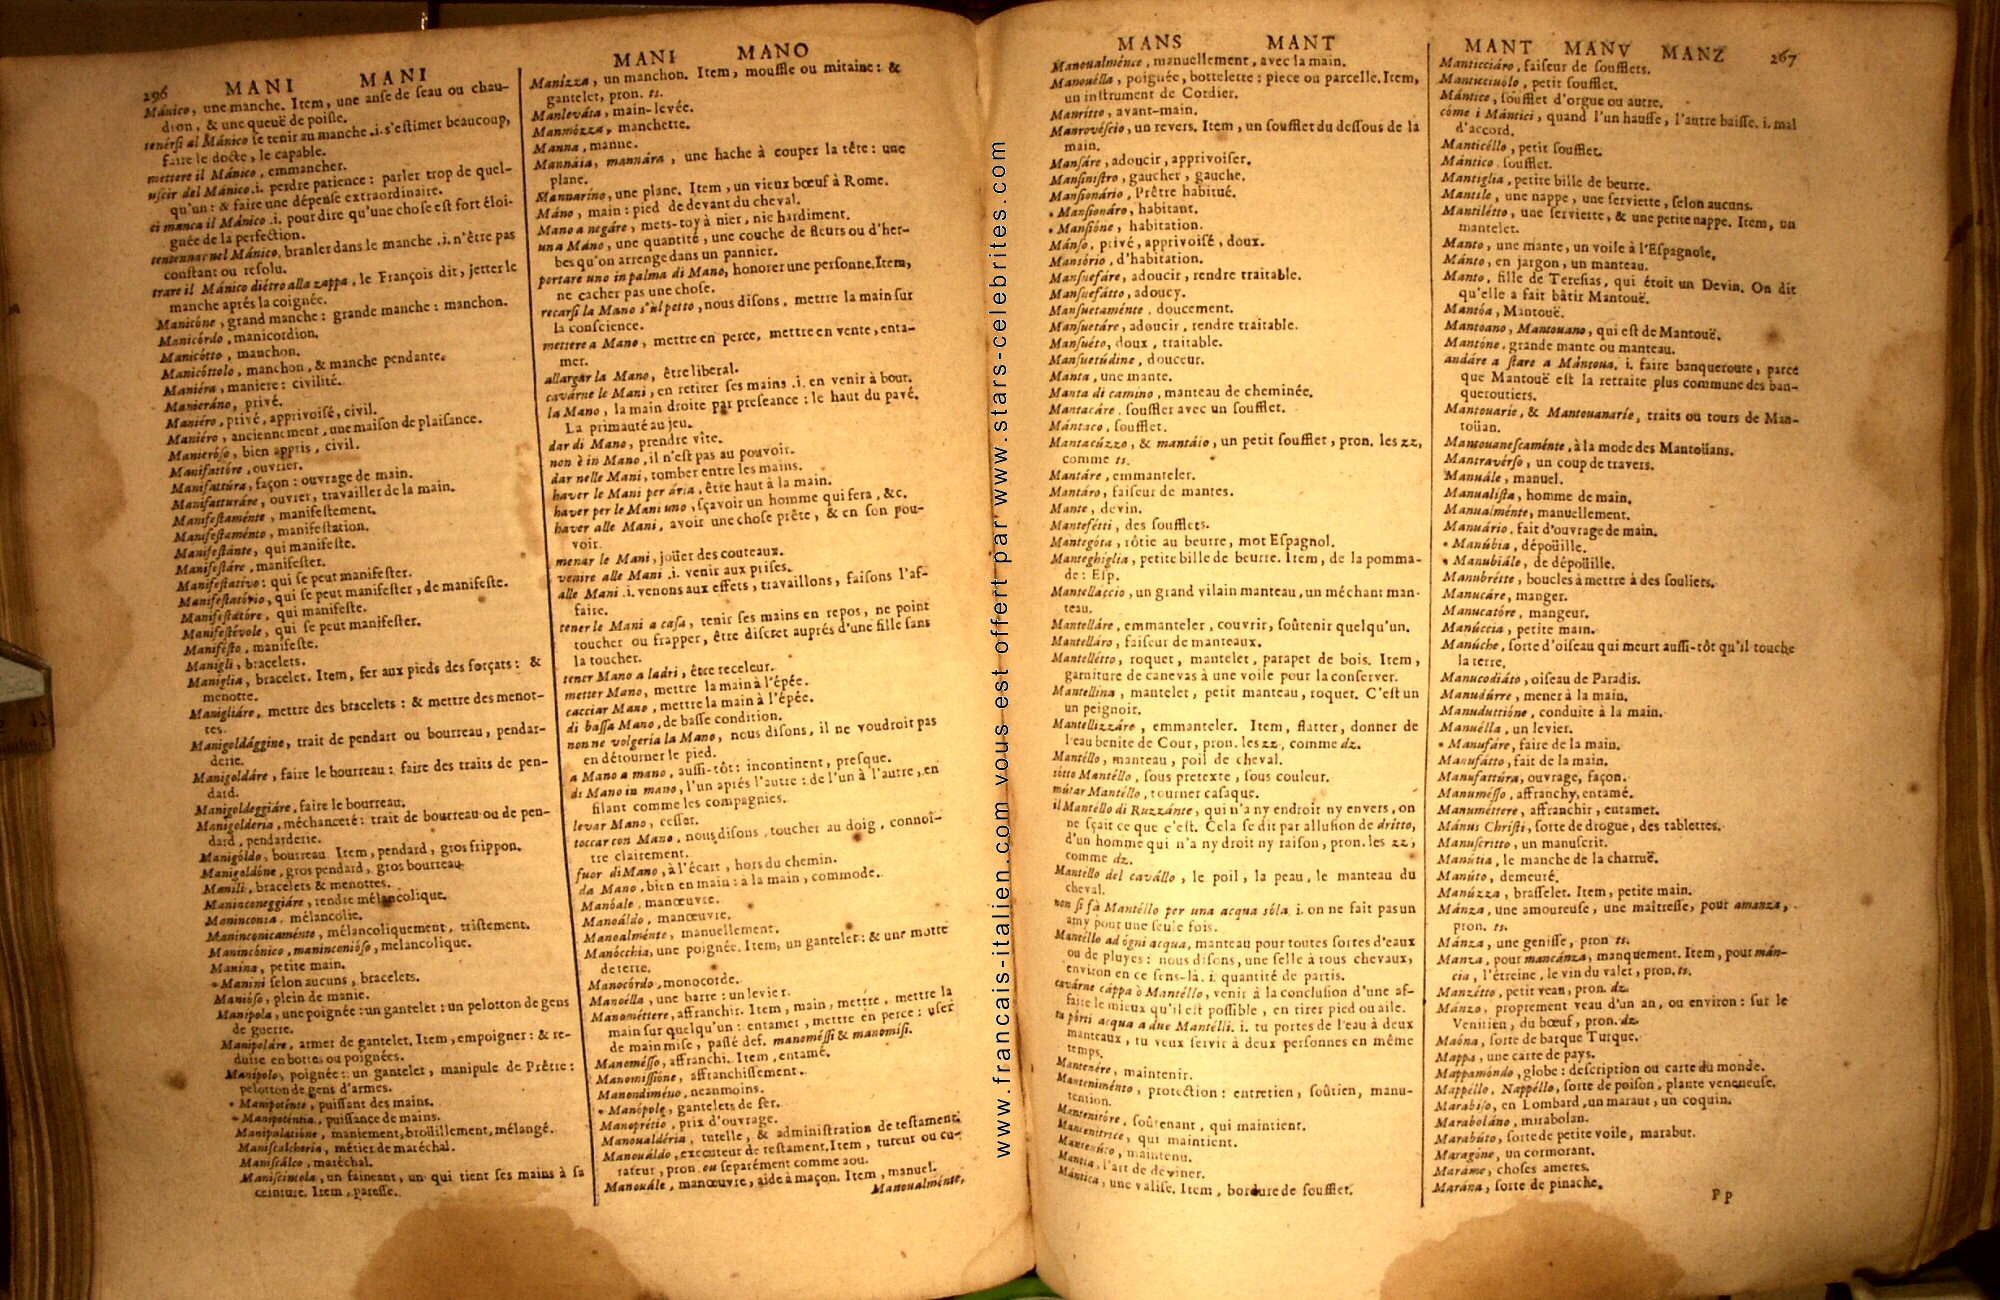 296 MANI MANI
Mánico, une manche. Item, une anſe de ſeau ou chau-
dron, & une queuë de poiſle.
tenérſi al Mánico ſe tenir au manche .i. s'eſtimer beaucoup,
faire le docte, le capable.
mettere il Mánico, emmancher.
uſcir del Mánico .i. perdre patience: parler trop de quel-
qu'un: & faire une dépenſe extraordinaire.
ci manca il Mánico .i. pour dire qu'une choſe eſt fort éloi-
gnée de la perfection.
tentennar nel Mánico, branler dans le manche .i. n'être pas
conſtant ou reſolu.
trare il Mánico diétro alla zappa, le François dit, jetter le
manche aprés la coignée.
Manicóne, grand manche: grande manche: manchon.
Manicórdo, manicordion.
Manicótto, manchon.
Manicóttolo, manchon, & manche pendante.
Maniéra, maniere: civilité.
Manieráno, privé.
Maniéro, privé, apprivoiſé, civil.
Maniéro, anciennement, une maiſon de plaiſance.
Manieróſo, bien appris, civil.
Manifattóre, ouvrier.
Manifattúra, façon: ouvrage de main.
Manifatturáre, ouvrer, travailler de la main.
Manifeſtaménte, manifeſtement.
Manifeſtaménto, manifeſtation.
Manifeſtánte, qui manifeſte.
Manifeſtáre, manifeſter.
Manifeſtativo: qui ſe peut manifeſter.
Manifeſtatório, qui ſe peut manifeſter, de manifeſte.
Manifeſtatóre, qui manifeſte.
Manifeſtévole, qui ſe peut manifeſter.
Manifeſto, manifeſte.
Manigli, bracelets.
Maniglia, bracelet. Item, fer aux pieds des forçats: &
menotte.
Manigliáre, mettre des bracelets: & mettre des menot-
tes.
Manigoldággine, trait de pendart ou bourreau, pendar-
derie.
Manigoldáre, faire le bourreau: faire des traits de pen-
dard.
Manigoldeggiáre, faire le bourreau.
Manigolderia, méchanceté: trait de bourreau ou de pen-
dard, pendarderie.
Manigóldo, bourreau Item, pendard, gros frippon.
Manigoldóne, gros pendard, gros bourreau.
Manili, bracelets & menottes.
Maninconeggiáre, rendre mélancolique.
Maninconia, mélancolie.
Maninconicaménte, mélancoliquement, triſtement.
Manincónico, maninconióſo, melancolique.
Manina, petite main.
* Manini ſelon aucuns, bracelets.
Manióſo, plein de manie.
Manipola, une poignée: un gantelet: un pelotton de gens
de guerre.
Manipoláre, armer de gantelet. Item, empoigner: & re-
duire en bottes ou poignées.
Manipolo, poignée: un gantelet, manipule de Prêtre:
pelotton de gens d'armes.
* Manipoténte, puiſſant des mains.
* Manipoténtia, puiſſance de mains.
Manipulatióne, maniement, broüillement, mélange.
Maniſcalcheria, métier de maréchal.
Maniſcálco, maréchal.
Maniſcimola, un faineant, un qui tient ſes mains à ſa
ceinture. Item, pareſſe.
MANI MANO
Manizza, un manchon. Item, mouffle ou mitaine: &
gantelet, pron. ts.
Manleváta, main-levée.
Manmózza, manchette.
Manna, manne.
Mannáia, mannára, une hache à couper la tête: une
plane.
Mannarino, une plane. Item, un vieux bœuf à Rome.
Máno, main: pied de devant du cheval.
Mano a negáre, mets-toy à nier, nie hardiment.
una Máno, une quantité, une couche de fleurs ou d'her-
bes qu'on arrenge dans un pannier.
portare uno in palma di Mano, honorer une perſonne. Item,
ne cacher pas une choſe.
recarſi la Mano s'ul petto, nous diſons, mettre la main ſur
la conſcience.
mettere a Mano, mettre en perce, mettre en vente, enta-
mer.
allargar la Mano, être liberal.
cavárne le Mani, en retirer ſes mains .i. en venir à bout.
la Mano, la main droite par preſeance: le haut du pavé.
La primauté au jeu.
dar di Mano, prendre vîte.
non è in Mano, il n'eſt pas au pouvoir.
dar nelle Mani, tomber entre les mains.
haver le Mani per ária, être haut à la main.
haver per le Mani uno, ſçavoir un homme qui ſera, &c.
haver alle Mani, avoir une choſe prête, & en ſon pou-
voir.
menar le Mani, joüer des couteaux.
venire alle Mani .i. venir aux priſes.
alle Mani .i. venons aux effets, travaillons, faiſons l'af-
faire.
tener le Mani a caſa, tenir ſes mains en repos, ne point
toucher ou frapper, être diſcret auprés d'une fille ſans
la toucher.
tener Mano a ladri, être receleur.
metter Mano, mettre la main à l'épée.
cacciar Mano, mettre la main à l'épée.
di baſſa Mano, de baſſe condition.
non ne volgeria la Mano, nous diſons, il ne voudroit pas
en détourner le pied.
a Mano a mano, auſſi-tôt: incontinent, preſque.
di Mano in mano, l'un aprés l'autre: de l'un à l'autre, en
filant comme les compagnies.
levar Mano, ceſſer.
toccar con Mano, nous diſons, toucher au doig, connoî-
tre clairement.
fuor di Mano, à l'écart, hors du chemin.
da Mano, bien en main: à la main, commode.
Manóale, manœuvre.
Manoáldo, manœuvre.
Manoalménte, manuellement.
Manócchia, une poignée. Item, un gantelet: & une motte
de terre.
Manocórdo, monocorde.
Manoélla, une barre: un levier.
Manométtere, affranchir. Item, main, mettre, mettre la
main ſur quelqu'un: entamer, mettre en perce: uſer
de main miſe, paſſé def. manoméſſi & manomiſi.
Manoméſſo, affranchi. Item, entamé.
Manomiſſióne, affranchiſſement.
Manondiméno, neanmoins.
* Manópole, gantelets de fer.
Manoprétio, prix d'ouvrage.
Manoualdéria, tutelle, & adminiſtration de teſtament.
Manouáldo, executeur de teſtament. Item, tuteur ou cu-
rateur, pron. ou ſeparément comme aou.
Manouále, manœuvre, aide à maçon. Item, manuel.
Manoualménte,
MANS MANT
Manoualménte, manuellement, avec la main.
Manouélla, poignée, bottelette: piece ou parcelle. Item,
un inſtrument de Cordier.
Manritto, avant-main.
Manrovéſcio, un revers. Item, un ſoufflet du deſſous de la
main.
Manſáre, adoucir, apprivoiſer.
Manſiniſtro, gaucher, gauche.
Manſionário, Prêtre habitué.
* Manſionáro, habitant.
* Manſióne, habitation.
Mánſo, privé, apprivoiſé, doux.
Manſório, d'habitation.
Manſuefáre, adoucir, rendre traitable.
Manſuefátto, adoucy.
Manſuetaménte, doucement.
Manſuetáre, adoucir, rendre traitable.
Manſuéto, doux, traitable.
Manſuetúdine, douceur.
Manta, une mante.
Manta di camino, manteau de cheminée.
Mantacáre, ſouffler avec un ſoufflet.
Mántaco, ſoufflet.
Mantacúzzo, & mantáio, un petit ſoufflet, pron. les zz,
comme ts.
Mantáre, emmanteler.
Mantáro, faiſeur de mantes.
Mante, devin.
Mantefétti, des ſoufflets.
Mantegóta, rôtie au beurre, mot Eſpagnol.
Manteghiglia, petite bille de beurre. Item, de la pomma-
de: Eſp.
Mantelláccio, un grand vilain manteau, un méchant man-
teau.
Mantelláre, emmanteler, couvrir, ſoûtenir quelqu'un.
Mantelláro, faiſeur de manteaux.
Mantellétto, roquet, mantelet, parapet de bois. Item,
garniture de canevas à une voile pour la conſerver.
Mantellina, mantelet, petit manteau, roquet. C'eſt un
un peignoir.
Mantellizzáre, emmanteler. Item, flatter, donner de
l'eau benite de Cour, pron. les zz, comme dz.
Mantéllo, manteau, poil de cheval.
sótto Mantéllo, ſous pretexte, ſous couleur.
mútar Mantéllo, tourner caſaque.
il Mantéllo di Ruzzánte, qui n'a ny endroit ny envers, on
ne ſçait ce que c'eſt. Cela ſe dit par alluſion de dritto,
d'un homme qui n'a ny droit ny raiſon, pron. les zz,
comme dz.
Mantello del cavállo, le poil, la peau, le manteau du
cheval.
non ſi fà Mantéllo per una acqua sóla. i. on ne fait pas un
amy pour une ſeule fois.
Mantéllo ad ógni acqua, manteau pour toutes ſortes d'eaux
ou de pluyes: nous diſons, une ſelle à tous chevaux,
environ en ce ſens-là. i. quantité de partis.
cavárne cáppa ò Mantéllo, venir à la concluſion d'une af-
faire le mieux qu'il eſt poſſible, en tirer pied ou aile.
tu porti acqua a due Mantélli. i. tu portes de l'eau à deux
manteaux, tu veux ſervir à deux perſonnes en même
temps.
Mantenére, maintenir.
Manteniménto, protection: entretien, ſoûtien, manu-
tention.
Mantenitóre, ſoûtenant, qui maintient.
Mantenitrice, qui maintient.
Mantenúto, maintenu.
Mantia, l'art de deviner.
Mántica, une valiſe. Item, bordure de ſoufflet.
MANT MANV MANZ 267
Manticciáro, faiſeur de ſoufflets.
Manticciuólo, petit ſoufflet.
Mántice, ſoufflet d'orgue ou autre.
cóme i Mántici, quand l'un hauſſe, l'autre baiſſe. i. mal
d'accord.
Manticéllo, petit ſoufflet.
Mántico, ſoufflet.
Mantiglia, petite bille de beurre.
Mantile, une nappe, une ſerviette, ſelon aucuns.
Mantilétto, une ſerviette, & une petite nappe. Item, un
mantelet.
Manto, une mante, un voile à l'Eſpagnole.
Mánto, en jargon, un manteau.
Manto, fille de Tereſias, qui étoit un Devin. On dit
qu'elle a fait bâtir Mantouë.
Mantóa, Mantouë.
Mantoano, Mantouano, qui eſt de Mantouë.
Mantóne, grande mante ou manteau.
andáre a ſtare a Mántoua. i. faire banqueroute, parce
que Mantouë eſt la retraite plus commune des ban-
queroutiers.
Mantouario, & Mantouanaríe, traits ou tours de Man-
toüan.
Mantouaneſcaménte, à la mode des Mantoüans.
Mantravérſo, un coup de travers.
Manuále, manuel.
Manualiſta, homme de main.
Manualménte, manuellement.
Manuário, fait d'ouvrage de main.
* Manúbia, dépoüille.
* Manubiále, de dépoüille.
Manubrétte, boucles à mettre à des ſouliers.
Manucáre, manger.
Manucatóre, mangeur.
Manúccia, petite main.
Manúche, ſorte d'oiſeau qui meurt auſſi-tôt qu'il touche
la terre.
Manucodiáto, oiſeau de Paradis.
Manudúrre, mener à la main.
Manuduttióne, conduite à la main.
Manuélla, un levier.
* Manufáre, faire de la main.
Manufátto, fait de la main.
Manufattúra, ouvrage, façon.
Manuméſſo, affranchy, entamé.
Manuméttere, affranchir, entamer.
Mánus Chriſti, ſorte de drogue, des tablettes.
Manuſcritto, un manuſcrit.
Manútia, le manche de la charruë.
Manúto, demeuré.
Manúzza, braſſelet. Item, petite main.
Mánza, une amoureuſe, une maîtreſſe, pour amanza,
pron. ts.
Mánza, une geniſſe, pron ts.
Manza, pour mancánza, manquement. Item, pour mán-
cia, l'étreine, le vin du valet, pron. ts.
Manzétto, petit veau, pron. dz.
Mánzo, proprement veau d'un an, ou environ: ſur le
Venitien, du bœuf, pron. dz.
Maóna, ſorte de barque Turque.
Mappa, une carte de pays.
Mappamóndo, globe: deſcription ou carte du monde.
Mappéllo, Nappéllo, ſorte de poiſon, plante veneneuſe.
Marabiſo, en Lombard, un maraut, un coquin.
Maraboláno, mirabolan.
Marabúto, ſorte de petite voile, marabut.
Maragóne, un cormorant.
Maráme, choſes ameres.
Marána, ſorte de pinache.
Pp
www.francais-italien.com vous est offert par www.stars-celebrites.com